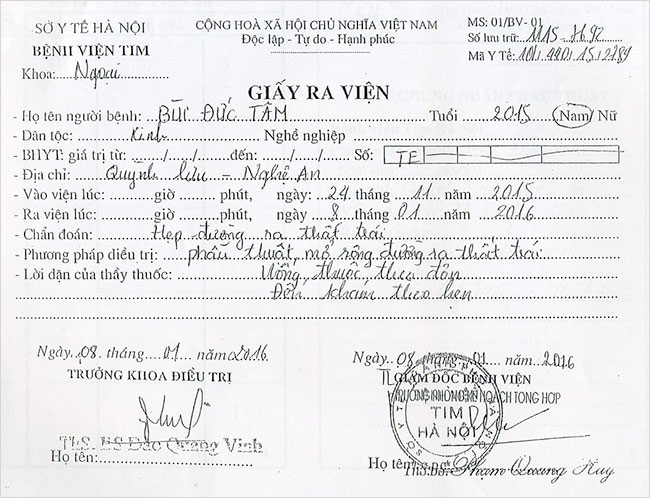 SỞ Y TẾ HÀ NỘI
BỆNH VIỆN TIM
Khoa: Ngoại
CỘNG HOÀ XÃ HỘI CHỦ NGHĨA VIỆT NAM
Độc lập - Tự do - Hạnh phúc
MS: 01/BV- 01
Số lưu trữ: 1115-3692
Mã Y Tế:
GIẤY RA VIỆN
- Họ tên người bệnh: BÙI ĐỨC TÂM Tuổi 2015 (Nam)/ Nữ
- Dân tộc: Kinh Nghề nghiệp
- BHYT: giá trị từ: ..../..../.... đến: ..../..../.... Số: TE
- Địa chỉ: Quỳnh Lưu - Nghệ An
- Vào viện lúc: ........ giờ ........ phút, ngày: 24 tháng 11 năm 2015
- Ra viện lúc: ........ giờ ........ phút, ngày: 8 tháng 01 năm 2016
- Chẩn đoán: Hẹp đường ra thất trái
- Phương pháp điều trị: phẫu thuật, mở rộng đường ra thất trái
- Lời dặn của thầy thuốc: Uống thuốc theo đơn
Đến khám theo hẹn
Ngày..08. tháng....01.... năm 2016
TRƯỞNG KHOA ĐIỀU TRỊ
ThS. BS Đào Quang Vinh
Họ tên:
Ngày....08 tháng....01.... năm 2016
TL GIÁM ĐỐC BỆNH VIỆN
TRƯỞNG PHÒNG KẾ HOẠCH TỔNG HỢP
TIM
HÀ NỘI
Họ tên ThS.BS. Phạm Quang Huy